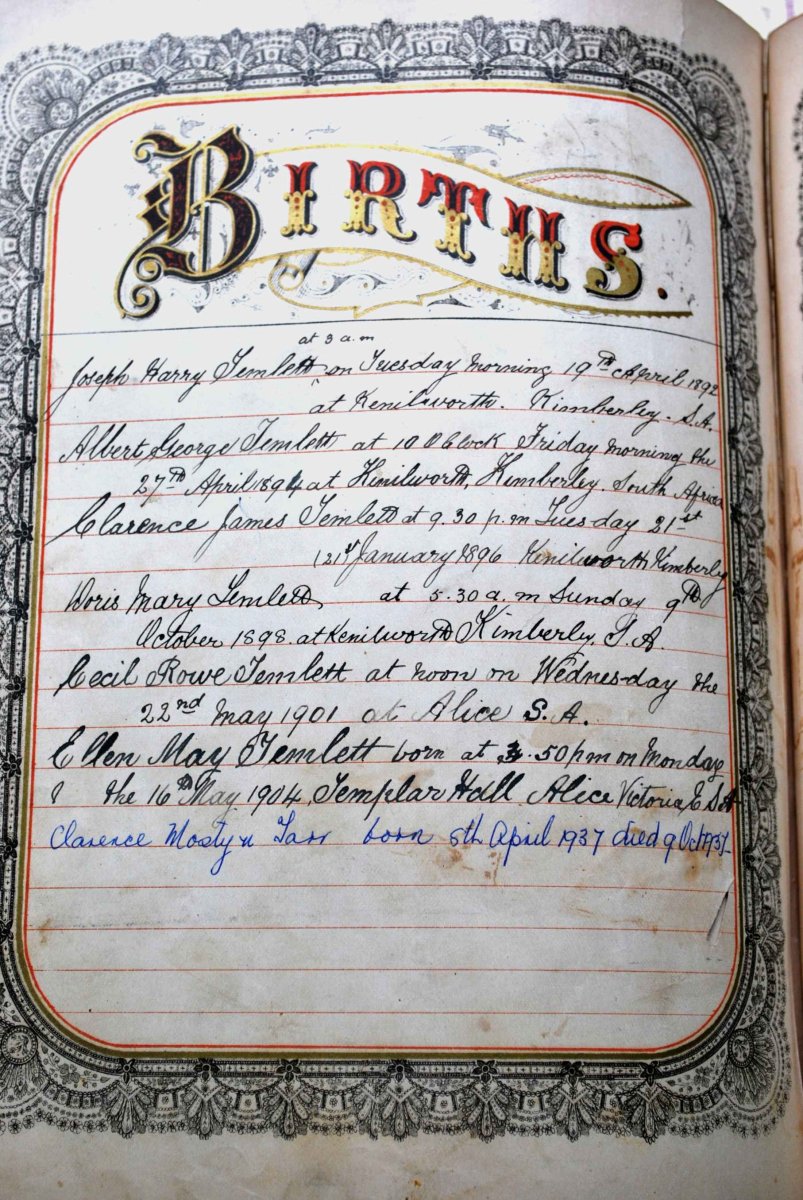 BIRTHS.
at 3 a.m
Joseph Harry Temlett on Tuesday Morning 19th April 1892
at Kenilworth. Kimberley. S.A.
Albert George Temlett at 10 OClock Friday morning the
27th April 1894 at Kenilworth, Kimberley. South Africa
Clarence James Temlett at 9.30 p.m Tuesday 21st
(21st January 1896 Kenilworth Kimberley
Doris Mary Temlett, at 5.30 a.m Sunday 9th
October 1898. at Kenilworth Kimberley. S.A.
Cecil Rowe Temlett at noon on Wednesday the
22nd May 1901 at Alice S.A.
Ellen May Temlett born at .50 pm on Monday
the 16th May 1904, Templar Hall Alice Victoria E S.A
Clarence Mostyn Tarr born 8th April 1937 died 9 Oct 1937